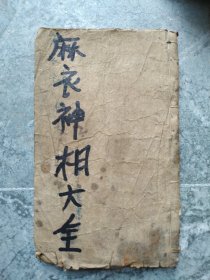 麻衣神相大全